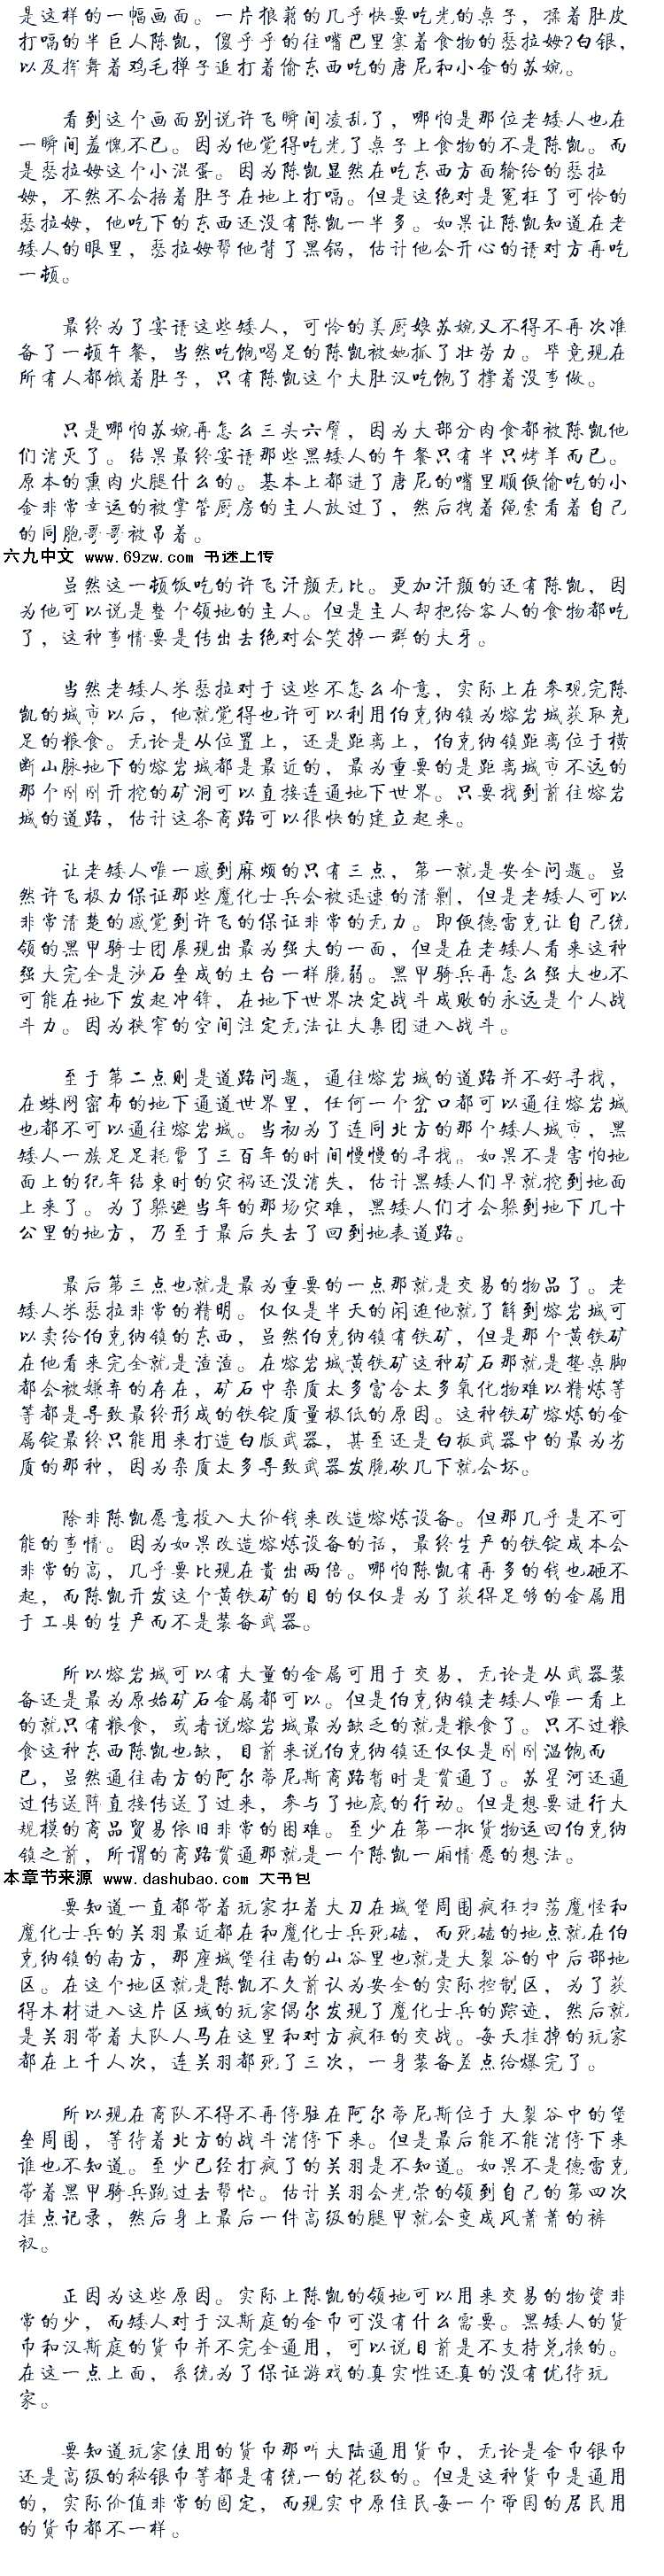 是这样的一幅画面。一片狼藉的几乎快要吃光的桌子，揉着肚皮
打嗝的半巨人陈凯，傻乎乎的往嘴巴里塞着食物的瑟拉姆?白银，
以及挥舞着鸡毛掸子追打着偷东西吃的唐尼和小金的苏婉。
看到这个画面别说许飞瞬间凌乱了，哪怕是那位老矮人也在
一瞬间羞愧不已。因为他觉得吃光了桌子上食物的不是陈凯。而
是瑟拉姆这个小混蛋。因为陈凯显然在吃东西方面输给的瑟拉
姆，不然不会捂着肚子在地上打嗝。但是这绝对是冤枉了可怜的
瑟拉姆，他吃下的东西还没有陈凯一半多。如果让陈凯知道在老
矮人的眼里，瑟拉姆帮他背了黑锅，估计他会开心的请对方再吃
一顿。
最终为了宴请这些矮人，可怜的美厨娘苏婉又不得不再次准
备了一顿午餐，当然吃饱喝足的陈凯被她抓了壮劳力。毕竟现在
所有人都饿着肚子，只有陈凯这个大肚汉吃饱了撑着没事做。
只是哪怕苏婉再怎么三头六臂，因为大部分肉食都被陈凯他
们消灭了。结果最终宴请那些黑矮人的午餐只有半只烤羊而已。
原本的熏肉火腿什么的。基本上都进了唐尼的嘴里顺便偷吃的小
金非常幸运的被掌管厨房的主人放过了，然后拽着绳索看着自己
的同胞哥哥被吊着。
六九中文 www.69zw.com 书迷上传
虽然这一顿饭吃的许飞汗颜无比。更加汗颜的还有陈凯，因
为他可以说是整个领地的主人。但是主人却把给客人的食物都吃
了，这种事情要是传出去绝对会笑掉一群的大牙。
当然老矮人米瑟拉对于这些不怎么介意，实际上在参观完陈
凯的城市以后，他就觉得也许可以利用伯克纳镇为熔岩城获取充
足的粮食。无论是从位置上，还是距离上，伯克纳镇距离位于横
断山脉地下的熔岩城都是最近的，最为重要的是距离城市不远的
那个刚刚开挖的矿洞可以直接连通地下世界。只要找到前往熔岩
城的道路，估计这条商路可以很快的建立起来。
让老矮人唯一感到麻烦的只有三点，第一就是安全问题。虽
然许飞极力保证那些魔化士兵会被迅速的清剿，但是老矮人可以
非常清楚的感觉到许飞的保证非常的无力。即便德雷克让自己统
领的黑甲骑士团展现出最为强大的一面，但是在老矮人看来这种
强大完全是沙石垒成的土台一样脆弱。黑甲骑兵再怎么强大也不
可能在地下发起冲锋，在地下世界决定战斗成败的永远是个人战
斗力。因为狭窄的空间注定无法让大集团进入战斗。
至于第二点则是道路问题，通往熔岩城的道路并不好寻找，
在蛛网密布的地下通道世界里，任何一个岔口都可以通往熔岩城
也都不可以通往熔岩城。当初为了连同北方的那个矮人城市，黑
矮人一族足足耗费了三百年的时间慢慢的寻找。如果不是害怕地
面上的纪年结束时的灾祸还没消失，估计黑矮人们早就挖到地面
上来了。为了躲避当年的那场灾难，黑矮人们才会躲到地下几十
公里的地方，乃至于最后失去了回到地表道路。
最后第三点也就是最为重要的一点那就是交易的物品了。老
矮人米瑟拉非常的精明。仅仅是半天的闲逛他就了解到熔岩城可
以卖给伯克纳镇的东西，虽然伯克纳镇有铁矿，但是那个黄铁矿
在他看来完全就是渣渣。在熔岩城黄铁矿这种矿石那就是垫桌脚
都会被嫌弃的存在，矿石中杂质太多富含太多氧化物难以精炼等
等都是导致最终形成的铁锭质量极低的原因。这种铁矿熔炼的金
属锭最终只能用来打造白版武器，甚至还是白板武器中的最为劣
质的那种，因为杂质太多导致武器发脆砍几下就会坏。
除非陈凯愿意投入大价钱来改造熔炼设备。但那几乎是不可
能的事情。因为如果改造熔炼设备的话，最终生产的铁锭成本会
非常的高，几乎要比现在贵出两倍。哪怕陈凯有再多的钱也砸不
起，而陈凯开发这个黄铁矿的目的仅仅是为了获得足够的金属用
于工具的生产而不是装备武器。
所以熔岩城可以有大量的金属可用于交易，无论是从武器装
备还是最为原始矿石金属都可以。但是伯克纳镇老矮人唯一看上
的就只有粮食，或者说熔岩城最为缺乏的就是粮食了。只不过粮
食这种东西陈凯也缺，目前来说伯克纳镇还仅仅是刚刚温饱而
已，虽然通往南方的阿尔蒂尼斯商路暂时是贯通了。苏星河还通
过传送阵直接传送了过来，参与了地底的行动。但是想要进行大
规模的商品贸易依旧非常的困难。至少在第一批货物运回伯克纳
镇之前，所谓的商路贯通那就是一个陈凯一厢情愿的想法。
本章节来源 www.dashubao.com 大书包
要知道一直都带着玩家扛着大刀在城堡周围疯狂扫荡魔怪和
魔化士兵的关羽最近都在和魔化士兵死磕，而死磕的地点就在伯
克纳镇的南方，那座城堡往南的山谷里也就是大裂谷的中后部地
区。在这个地区就是陈凯不久前认为安全的实际控制区，为了获
得木材进入这片区域的玩家偶尔发现了魔化士兵的踪迹，然后就
是关羽带着大队人马在这里和对方疯狂的交战。每天挂掉的玩家
都在上千人次，连关羽都死了三次，一身装备差点给爆完了。
所以现在商队不得不再停驻在阿尔蒂尼斯位于大裂谷中的堡
垒周围，等待着北方的战斗消停下来。但是最后能不能消停下来
谁也不知道。至少已经打疯了的关羽是不知道。如果不是德雷克
带着黑甲骑兵跑过去帮忙。估计关羽会光荣的领到自己的第四次
挂点记录，然后身上最后一件高级的腿甲就会变成风萧萧的裤
衩。
正因为这些原因。实际上陈凯的领地可以用来交易的物资非
常的少，而矮人对于汉斯庭的金币可没有什么需要。黑矮人的货
币和汉斯庭的货币并不完全通用，可以说目前是不支持兑换的。
在这一点上面，系统为了保证游戏的真实性还真的没有优待玩
家。
要知道玩家使用的货币那叫大陆通用货币，无论是金币银币
还是高级的秘银币等都是有统一的花纹的。但是这种货币是通用
的，实际价值非常的固定，而现实中原住民每一个帝国的居民用
的货币都不一样。